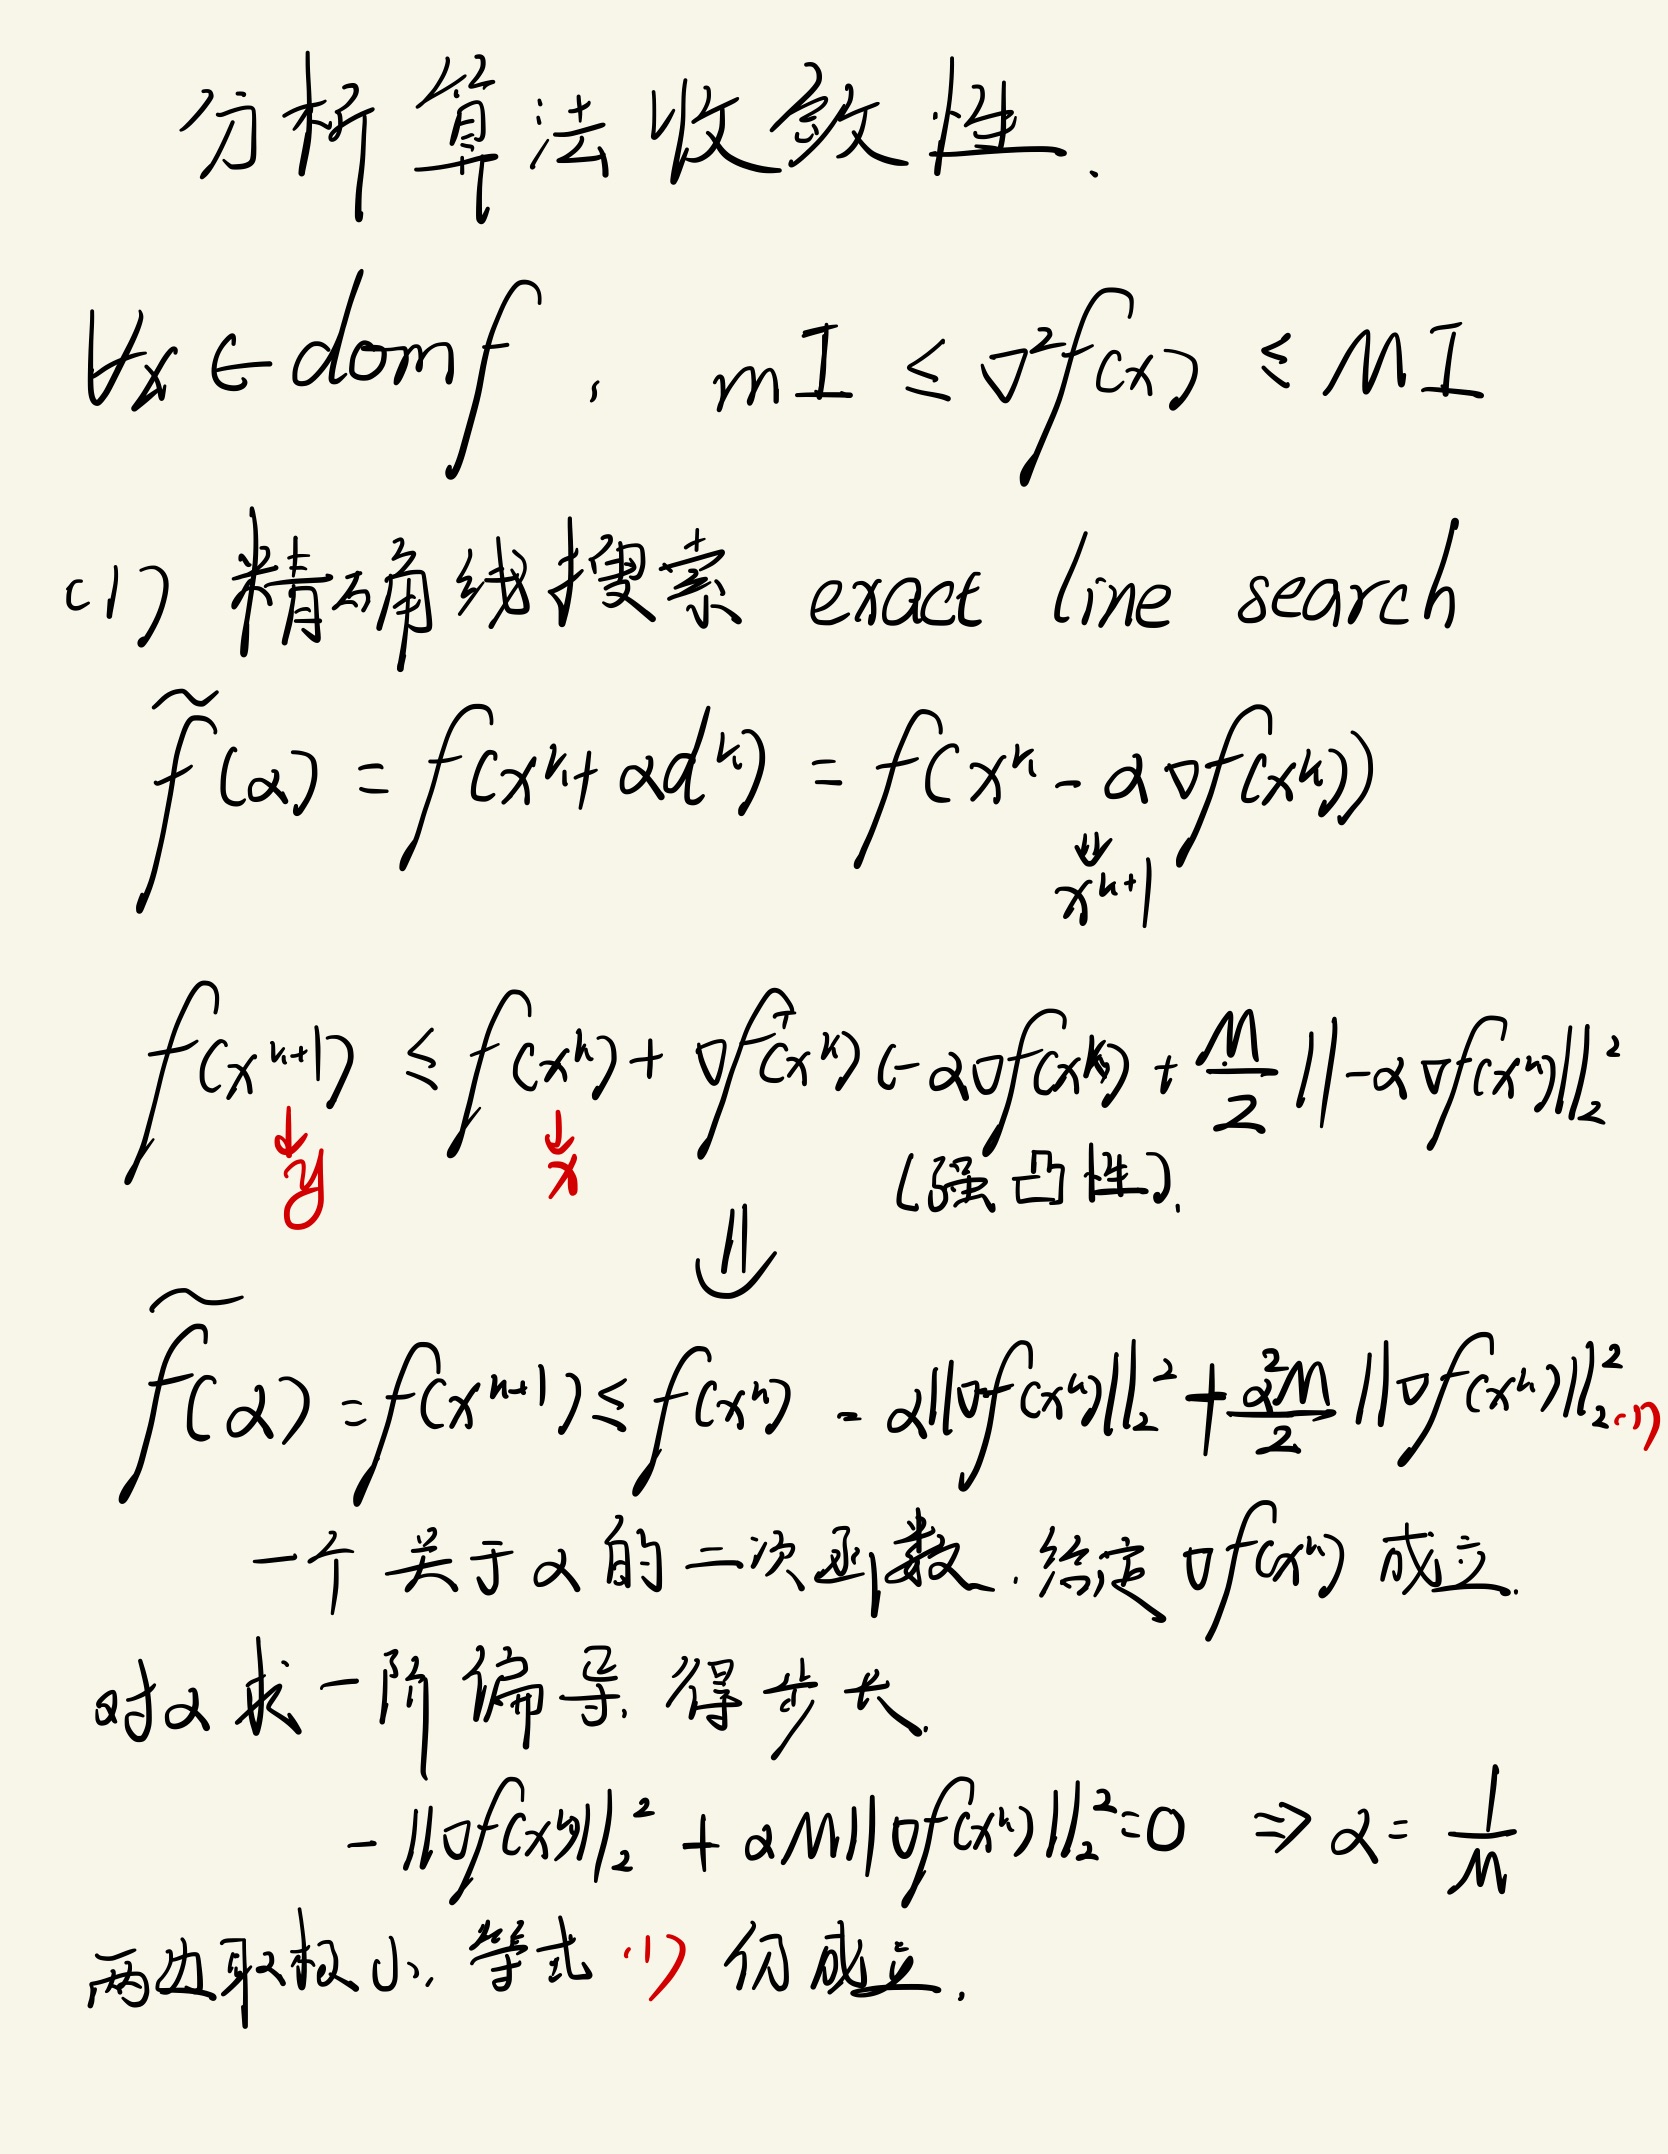 分析算法收敛性.
∀x ∈ domf, mI ≤ ∇²f(x) ≤ MI
(1) 精确线搜索 exact line search
f̃(α) = f(xᵏ + αdᵏ) = f(xᵏ - α∇f(xᵏ))
⇓
xᵏ⁺¹
f(xᵏ⁺¹) ≤ f(xᵏ) + ∇fᵀ(xᵏ)(-α∇f(xᵏ)) + M/2 ||-α∇f(xᵏ)||₂²
↓ ↓
y x (强凸性).
⇓
f̃(α) = f(xᵏ⁺¹) ≤ f(xᵏ) - α||∇f(xᵏ)||₂² + α²M/2 ||∇f(xᵏ)||₂² (1)
一个关于α的二次函数. 给定∇f(xᵏ) 成立.
对α求一阶偏导, 得步长.
-||∇f(xᵏ)||₂² + αM||∇f(xᵏ)||₂² = 0 ⇒ α = 1/M
两边取极小, 等式 (1) 仍成立.